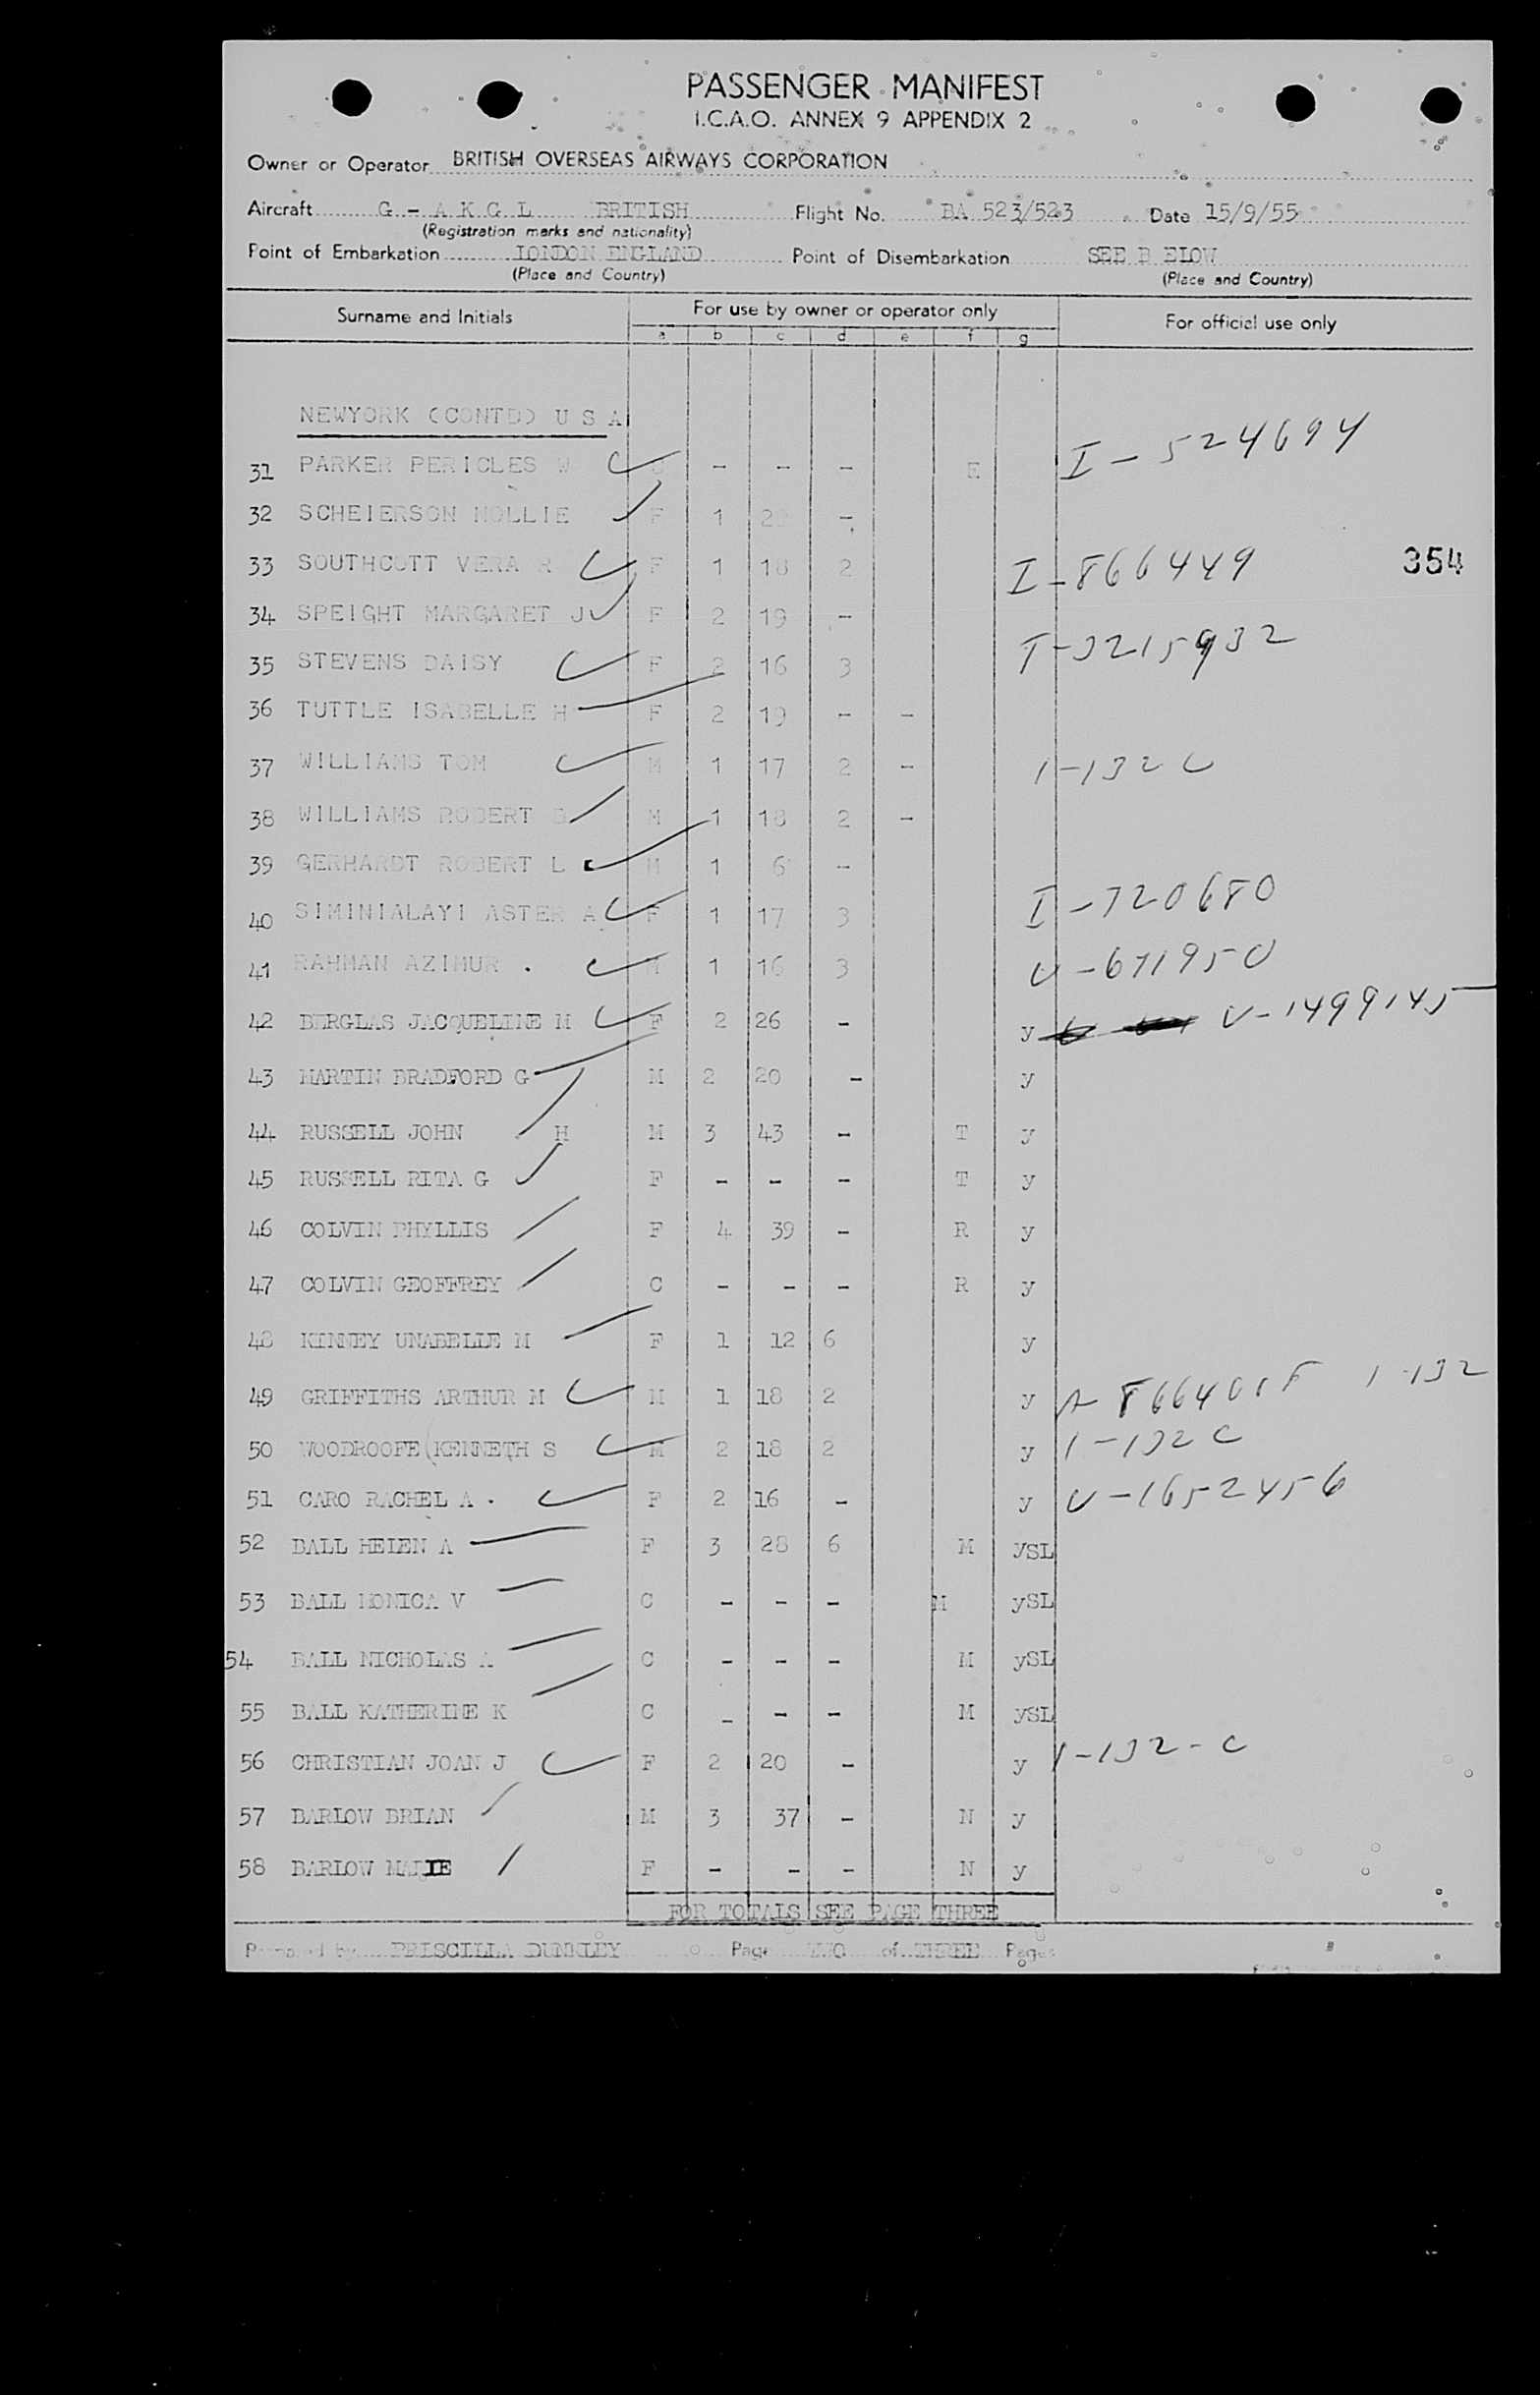 PASSENGER MANIFEST
I.C.A.O. ANNEX 9 APPENDIX 2
Owner or Operator BRITISH OVERSEAS AIRWAYS CORPORATION
Aircraft G - A K G L BRITISH Flight No. BA 523/523 Date 15/9/55
(Registration marks and nationality)
Point of Embarkation LONDON ENGLAND Point of Disembarkation SEE B ELOW
(Place and Country) (Place and Country)
Surname and Initials For use by owner or operator only For official use only
a b c d e f g
NEWYORK (CONTD) U S A
31 PARKER PERICLES W - - - E I-524694
32 SCHEIERSON MOLLIE F 1 -
33 SOUTHCOTT VERA R F 1 18 2 I-866449 354
34 SPEIGHT MARGARET J F 2 19 -
35 STEVENS DAISY F 2 16 3 I-3215932
36 TUTTLE ISABELLE H F 2 19 - -
37 WILLIAMS TOM M 1 17 2 - 1-132 C
38 WILLIAMS ROBERT G M 1 18 2 -
39 GERHARDT ROBERT L M 1 6 -
40 SIMINIALAYI ASTER A F 1 17 3 I-720680
41 RAHMAN AZIMUR . M 1 16 3 V-671950
42 BERGLAS JACQUELINE M F 2 26 - y V-1499145
43 MARTIN BRADFORD G M 2 20 - y
44 RUSSELL JOHN H M 3 43 - T y
45 RUSSELL RITA G F - - - T y
46 COLVIN PHYLLIS F 4 39 - R y
47 COLVIN GEOFFREY C - - - R y
48 KINNEY UNABELLE M F 1 12 6 y
49 GRIFFITHS ARTHUR M M 1 18 2 y A 1-132
50 WOODROOFE KENNETH S M 2 18 2 y 1-132 C
51 CARO RACHEL A . F 2 16 - y V-1652456
52 BALL HELEN A F 3 28 6 M ySL
53 BALL MONICA V C - - - M ySL
54 BALL NICHOLAS A C - - - M ySL
55 BALL KATHERINE K C - - - M ySL
56 CHRISTIAN JOAN J F 2 20 - y 1-132-C
57 BARLOW BRIAN M 3 37 - N y
58 BARLOW F - - - N y
FOR TOTALS SEE PAGE THREE
Prepared by PRISCILLA DUNKLEY Page TWO of THREE Pages